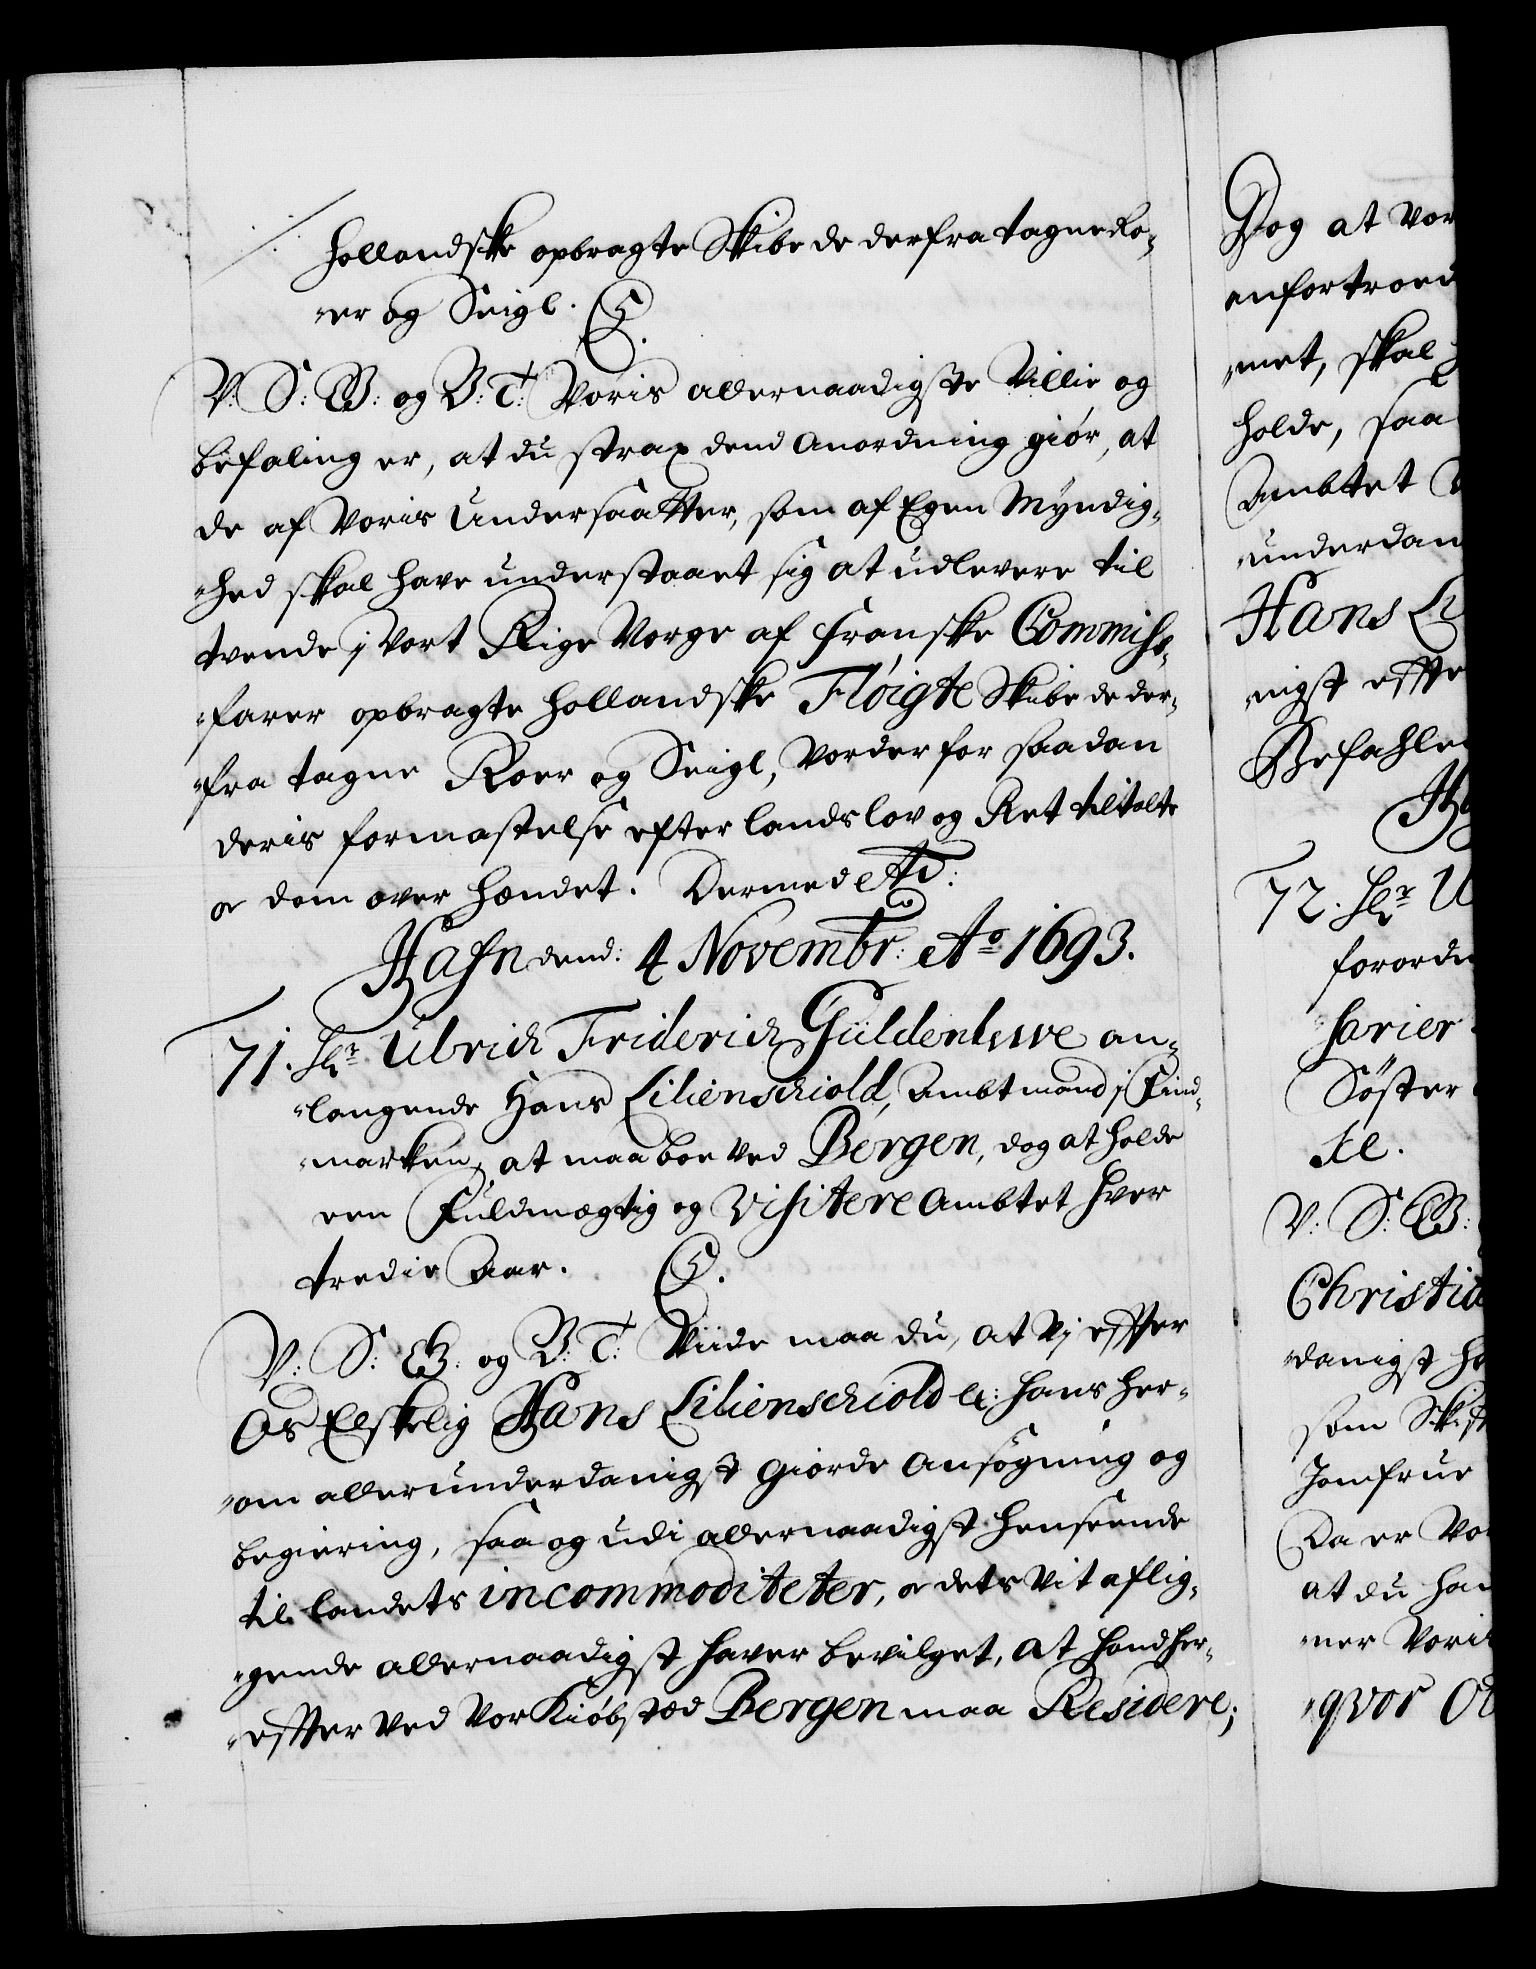 Hollandske opbragte Skibe de derfra tagne Ro-
er og Seigl. C5.
V: S: G B: og B: T: Voris allernaadigste Villie og
befaling er, at du strax dend Anordning giör, at
de af Voris Undersaatter, som af Egen Myndig-
hed skal have understaaet sig at udlevere til
tvende j Vort Rige Norge af franske Commiss-
farer opbragte Hollandske Fløigte Skibe de der-
fra tagne Roer og Seigl, vorder for saadan
deris formastelse efter Landslov og Ret tiltalte
oc dom over hændet. Dermed etc:
Hafn dend: 4 Novembr: Ao 1693.
71. Hr. Ulrich Friderich Güldenlewe an-
langende Hans Lilienschiold, Ambtmand j Find-
marken, at maa boe ved Bergen, dog at holde
een Fuldmegtig og Visitere Ambtet hver
tredie Aar. C5.
V: S: G B: og B: T: Viide maa du, at Vj effter
Os Elskelig Hans Lilienschiold etc: hans her-
om allerunderdanigst giorde Ansøgning og
begiering, saa og udi allernaadigst henseende
til landets incommoditeter, oc dets vit aflig-
gende allernaadigst haver bevilget, at hand her-
effter ved Vor Kiøbsted Bergen maa Residere;
Dog at Vor
enfortroed
met, skal
holde, saa
Ambtet
underdan
Hans Li
nigst effte
Befahle
72. Hr. U
forordn
Søster
til.
V: S: G B:
Christia
danigst h
som Skift
Jomfrue
Da er Vo
at du han
ner Voris
qvor O